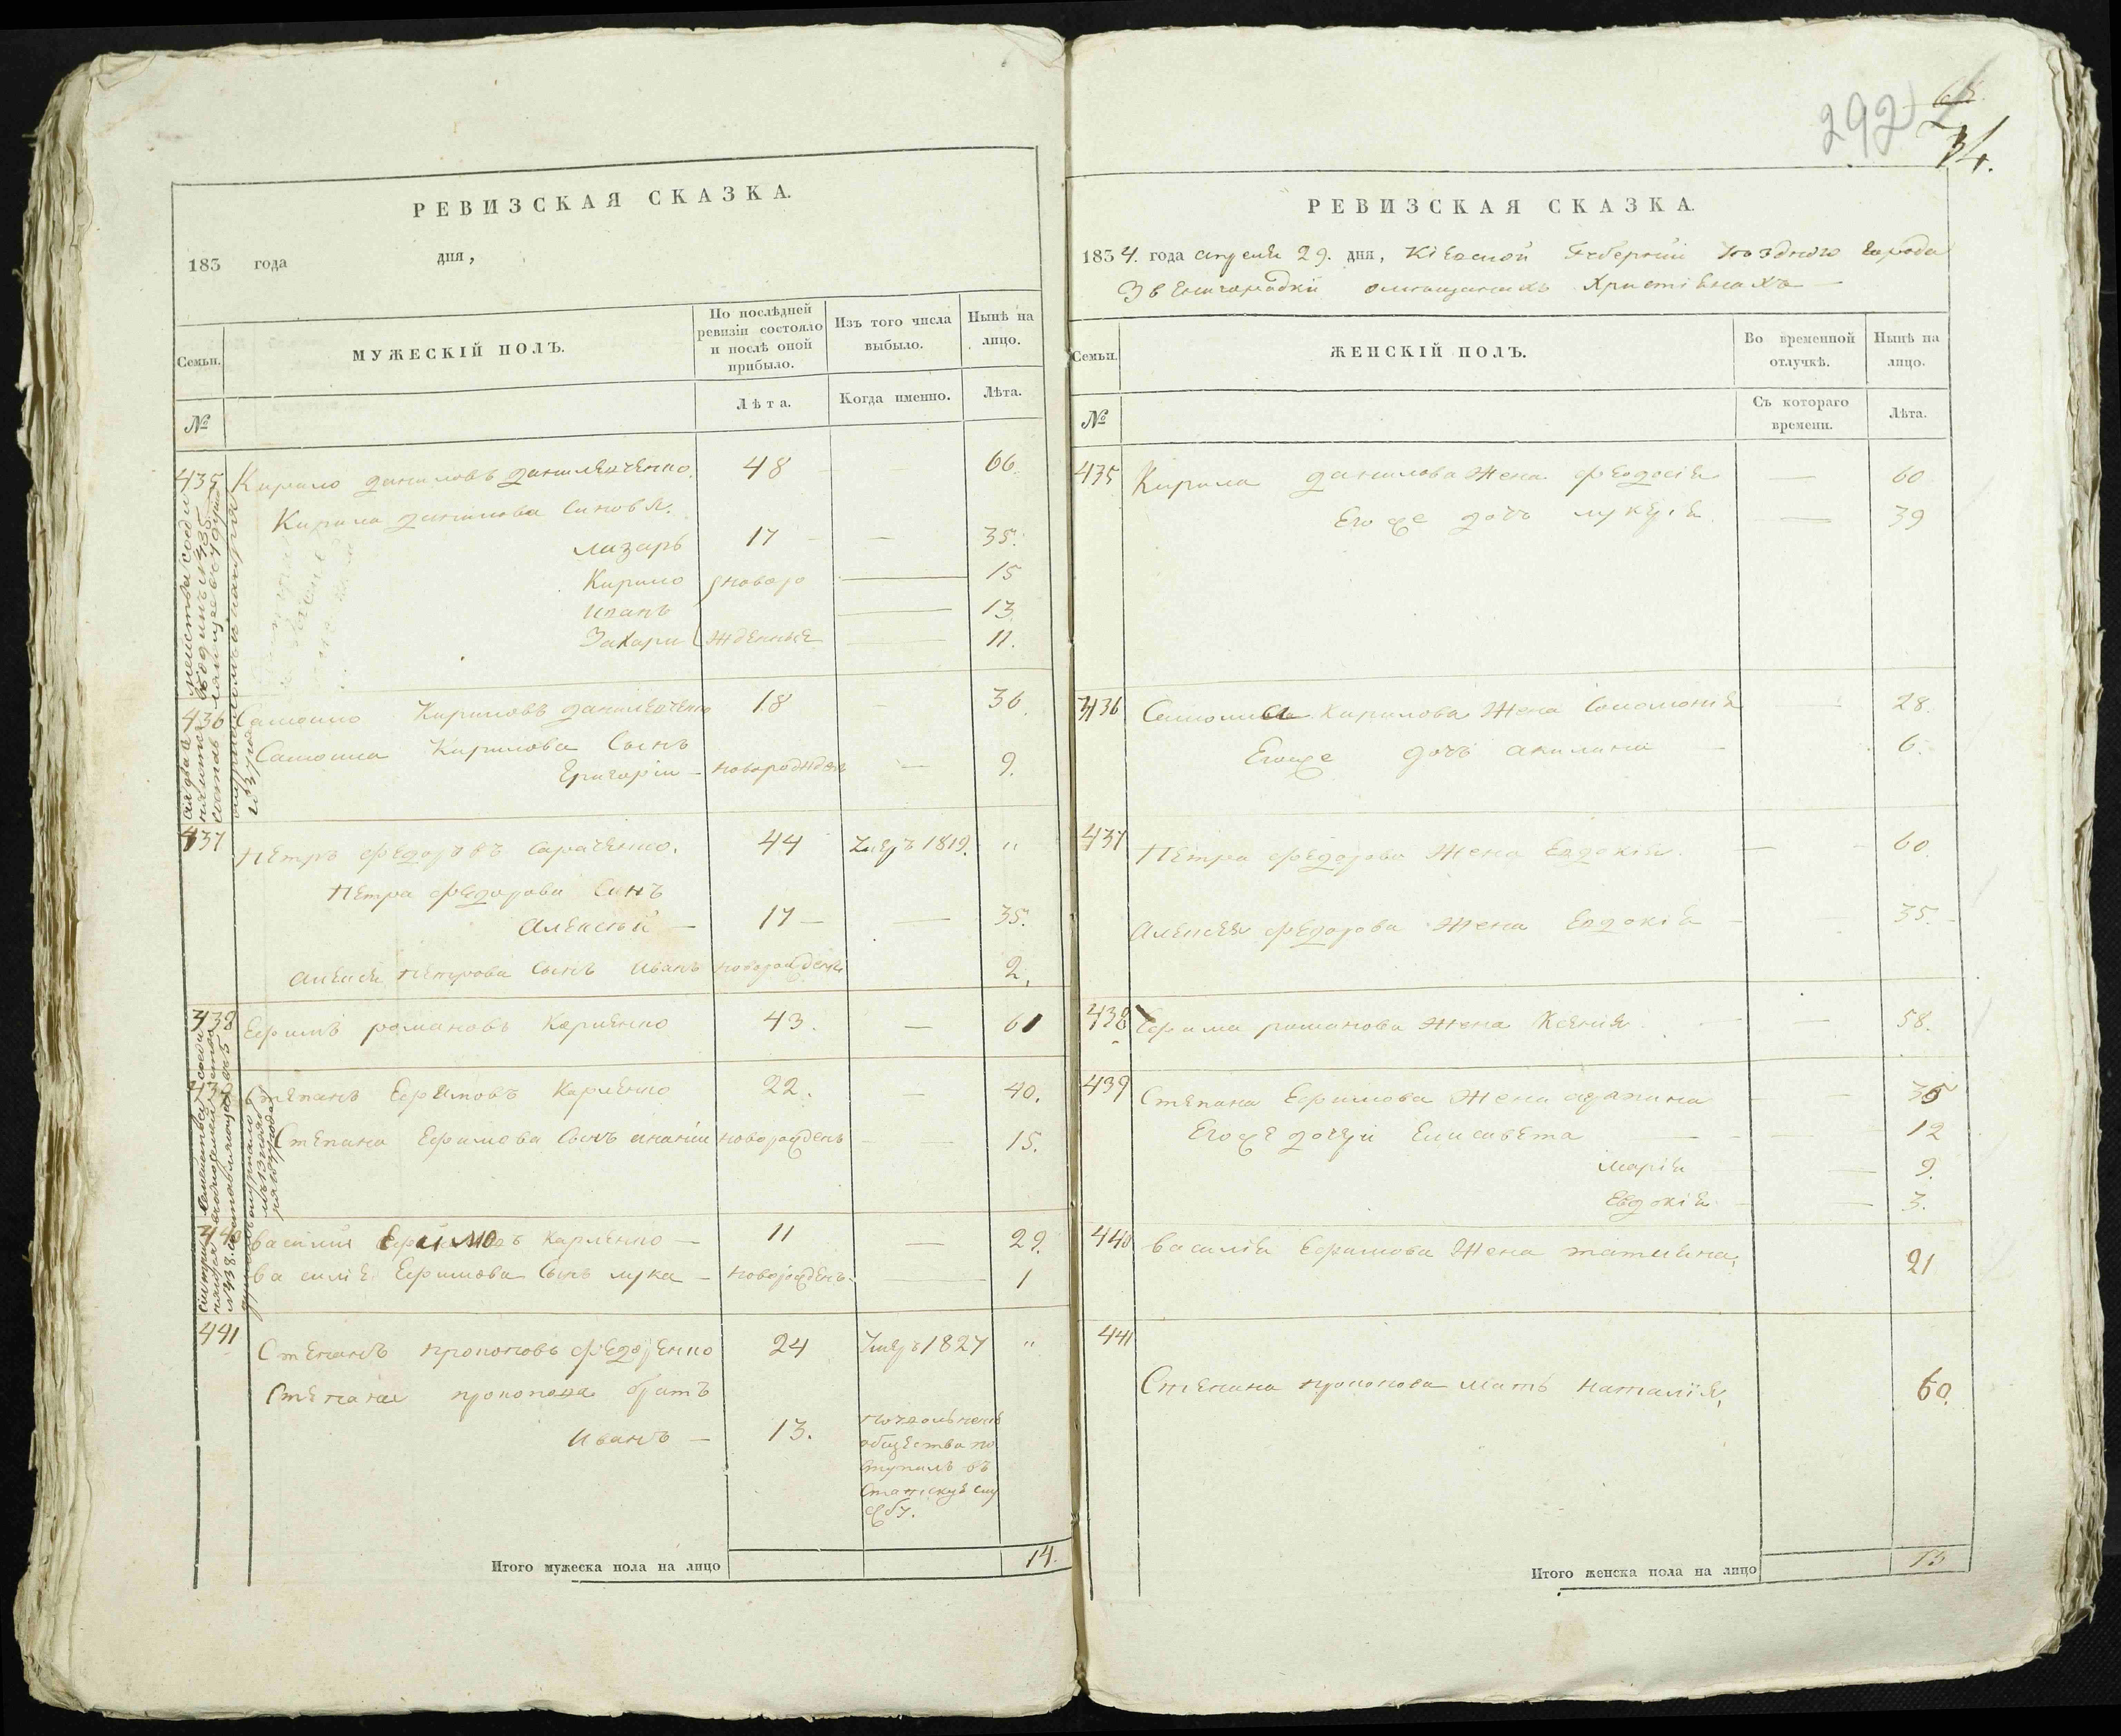 РЕВИЗСКАЯ СКАЗКА.
183 года дня,
Семьи. МУЖЕСКІЙ ПОЛЪ. По послѣдней ревизіи состояло и послѣ оной прибыло. Изъ того числа выбыло. Нынѣ на лицо.
№ Лѣта. Когда именно. Лѣта.
435 Кирило Даниловъ Данилевченко 48 66.
Кирила Данилова Синовя.
Лазарь 17 — 35.
Кирило новоро 15
Иванъ 13
Захари жденные 11.
436 Самоило Кириловъ Данилевченко 18 36.
Самоила Кирилова Сынъ
Григорiи — новорожденъ — 9.
437 Петръ Федоровъ Сараченко. 44 Умеръ 1819. "
Петра Федорова Синъ
Алексѣй — 17 — — 35.
Алексея Петрова Сынъ Иванъ новорожденъ 2.
438 Ефимъ Романовъ Карпенко 43. — 61
439 Степанъ Ефимовъ Карпенко 22. — 40.
Степана Ефимова Сынъ Ананiи новорожденъ 15.
440 Василий Ефимовъ Карпенко — 11 — 29.
Василiя Ефимова Сынъ Лука — новорожденъ. — 1
441 Степанъ Прокоповъ Федоренко 24 Умеръ 1827 "
Степана Прокопова братъ
Иванъ — 13.
общества по
ступилъ въ
слу
жбу.
Итого мужеска пола на лицо 14.
292
74.
РЕВИЗСКАЯ СКАЗКА.
1834. года апреля 29. дня, Кіевской Губерніи уезднаго города
Звенигородки омещанихъ Християнахъ
Семьи. ЖЕНСКІЙ ПОЛЪ. Во временной отлучкѣ. Нынѣ на лицо.
№ Съ котораго времени. Лѣта.
435 Кирила Данилова Жена Феодосiя — 60
Его же дочь Лукерiя — 39
436 Самоила Кирилова Жена Соломония 28.
Егоже дочь Акилина — 6.
437 Петра Федорова Жена Евдокiя. — 60.
Алексея Федорова Жена Евдокiя — 35.
438 Ефима Романова Жена Ксения — 58.
439 Степана Ефимова Жена 35
Егоже дочери Елисавета — 12
Марiя — 9.
Евдокiя — 3.
440 Василiя Ефимова Жена Татиана, 21
441
Степана Прокопова мать Наталiя, 60.
Итого женска пола на лицо 13